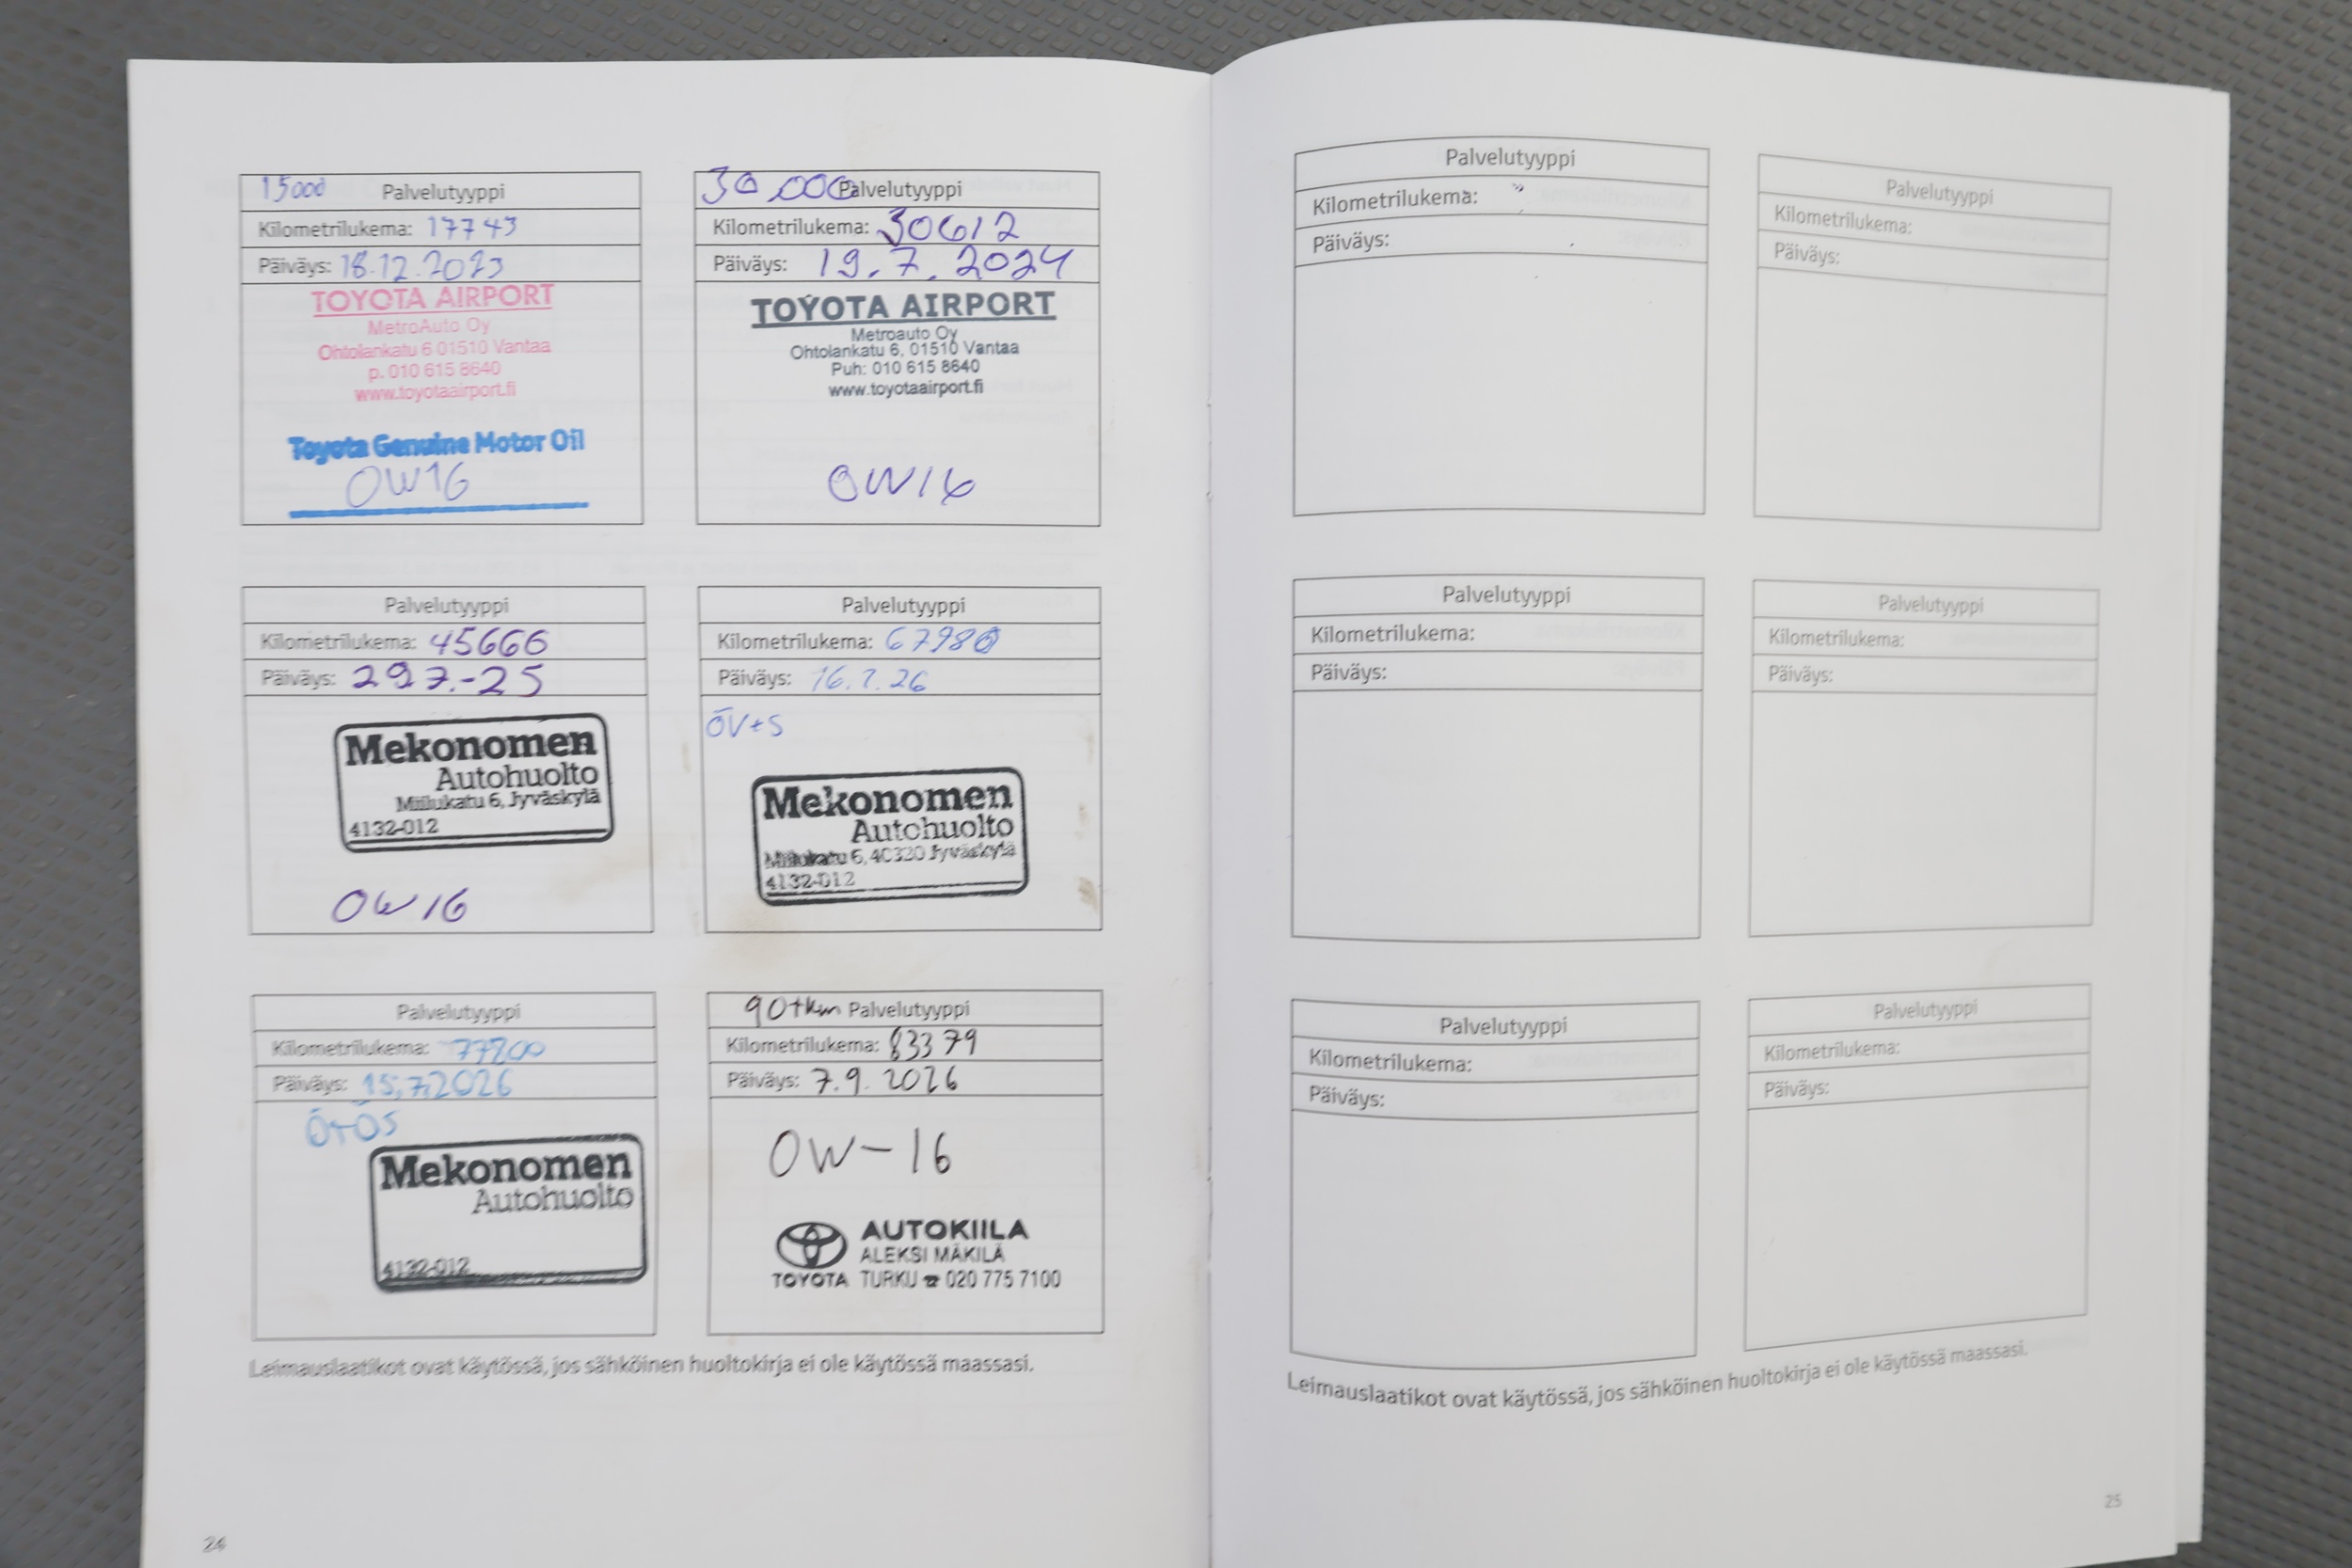 15000 Palvelutyyppi
Kilometrilukema: 17743
Päiväys: 18.12.2023
TOYOTA AIRPORT
MetroAuto Oy
Ohtolankatu 6 01510 Vantaa
p. 010 615 8640
www.toyotaairport.fi
Toyota Genuine Motor Oil
0W16
30.000 Palvelutyyppi
Kilometrilukema: 30612
Päiväys: 19.7.2024
TOYOTA AIRPORT
Metroauto Oy
Ohtolankatu 6, 01510 Vantaa
Puh: 010 615 8640
www.toyotaairport.fi
0W16
Palvelutyyppi
Kilometrilukema: 45666
Päiväys: 29 7.-25
Mekonomen
Autohuolto
Miilukatu 6, Jyväskylä
4132-012
0W16
Palvelutyyppi
Kilometrilukema: 67980
Päiväys: 16.2.26
ÖV+S
Mekonomen
Autohuolto
Miilukatu 6, 40320 Jyväskylä
4132-012
Palvelutyyppi
Kilometrilukema: 77200
Päiväys: 15,7,2026
Ö+ÖS
Mekonomen
Autohuolto
4132-012
90tkm Palvelutyyppi
Kilometrilukema: 83379
Päiväys: 7.9. 2026
0W-16
AUTOKIILA
ALEKSI MÄKILÄ
TOYOTA TURKU ☎ 020 775 7100
Leimauslaatikot ovat käytössä, jos sähköinen huoltokirja ei ole käytössä maassasi.
24
Palvelutyyppi
Kilometrilukema:
Päiväys:
Palvelutyyppi
Kilometrilukema:
Päiväys:
Palvelutyyppi
Kilometrilukema:
Päiväys:
Palvelutyyppi
Kilometrilukema:
Päiväys:
Palvelutyyppi
Kilometrilukema:
Päiväys:
Palvelutyyppi
Kilometrilukema:
Päiväys:
Leimauslaatikot ovat käytössä, jos sähköinen huoltokirja ei ole käytössä maassasi.
25